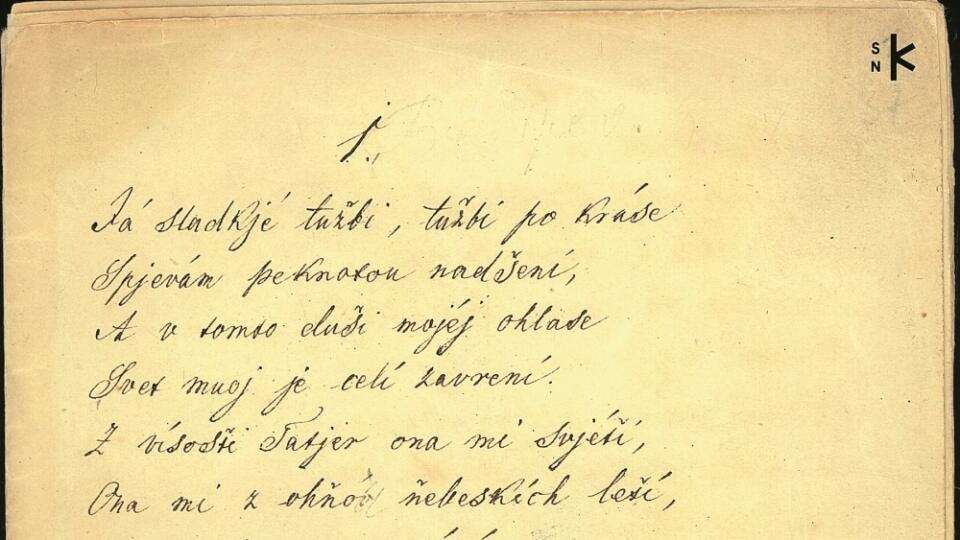 SN K
1.,
Já sladkjé tužbi, tužbi po kráse
Spjevám peknotou nadšení,
A v tomto duši mojéj ohlase
Svet muoj je celí zavrení.
Z vísosťi Tatjer ona mi svjéťi,
Ona mi z ohňov ňebeskích leťí,